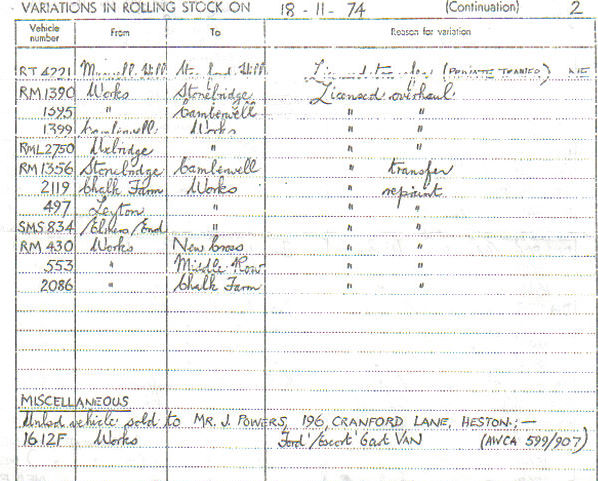 VARIATIONS IN ROLLING STOCK ON 18 - 11 - 74 (Continuation) 2
Vehicle number From To Reason for variation
RT 4221 Muswell Hill Stamford Hill Licensed transfer (PRIVATE TRAINER)
RM 1390 Works Stonebridge Licensed overhaul
1595 " Camberwell " "
1399 Camberwell Works " "
RML 2750 Uxbridge " " "
RM 1356 Stonebridge Camberwell " transfer
2119 Chalk Farm Works " repaint
497 Leyton " " "
SMS 834 Elmers End " " "
RM 430 Works New Cross " "
553 " Middle Row " "
2086 " Chalk Farm " "
MISCELLANEOUS
Unlsd vehicle sold to MR. J. POWERS, 196, CRANFORD LANE, HESTON:-
1612F Works Ford 'Escort' 6cwt VAN (AWCA 599/907)